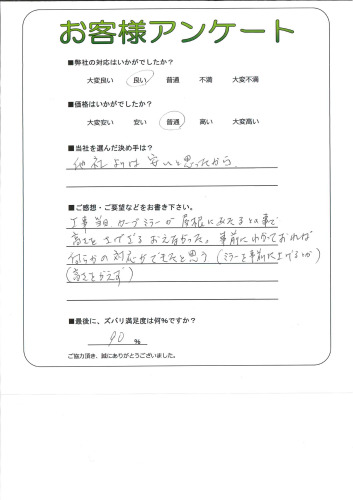 お客様アンケート
■弊社の対応はいかがでしたか?
大変良い 良い 普通 不満 大変不満
■価格はいかがでしたか?
大変安い 安い 普通 高い 大変高い
■当社を選んだ決め手は?
他社よりは安いと思ったから
■ご感想・ご要望などをお書き下さい。
工事当日カーブミラーが屋根にあたるとの事で
高さを下げざるおえなかった。事前にわかっておれば
何らかの対応ができたと思う(ミラーを事前に上げるとか)
(高さをかえず)
■最後に、ズバリ満足度は何%ですか?
90 %
ご協力頂き、誠にありがとうございました。